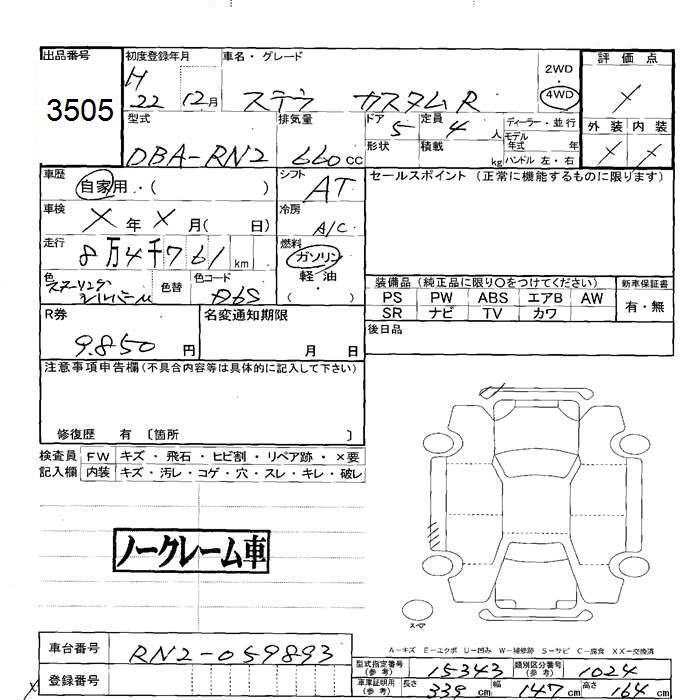 出品番号 初度登録年月 車名・グレード 評価点
3505 H 22 12月 ステラ カスタムR 2WD・4WD X
型式 排気量 ドア 定員 ディーラー・並行 外装 内装
DBA-RN2 660cc 5 4人 モデル年式 年 X X
形状 積載 kg ハンドル 左・右
車歴 自家用・( ) シフト AT セールスポイント(正常に機能するものに限ります)
車検 X年X月( 日) 冷房 A/C
走行 8万4千761km 燃料 ガソリン
軽油
( )
色 色替 色コード D6S
装備品(純正品に限り○をつけてください) 新車保証書
PS PW ABS エアB AW 有・無
SR ナビ TV カワ
R券 名変通知期限 後日品
9.850円 月 日
注意事項申告欄(不具合内容等は具体的に記入して下さい)
修復歴 有 〔箇所 〕
検査員 FW キズ・飛石・ヒビ割・リペア跡・×要
記入欄 内装 キズ・汚レ・コゲ・穴・スレ・キレ・破レ
ノークレーム車
スペア
A-キズ E-エクボ U-凹み W-補修跡 S-サビ C-腐食 XX-交換済
車台番号 RN2-059893
型式指定番号(参考) 15343 類別区分番号(参考) 1024
登録番号
車庫証明用(参考) 長さ 339cm 幅 147cm 高さ 164cm